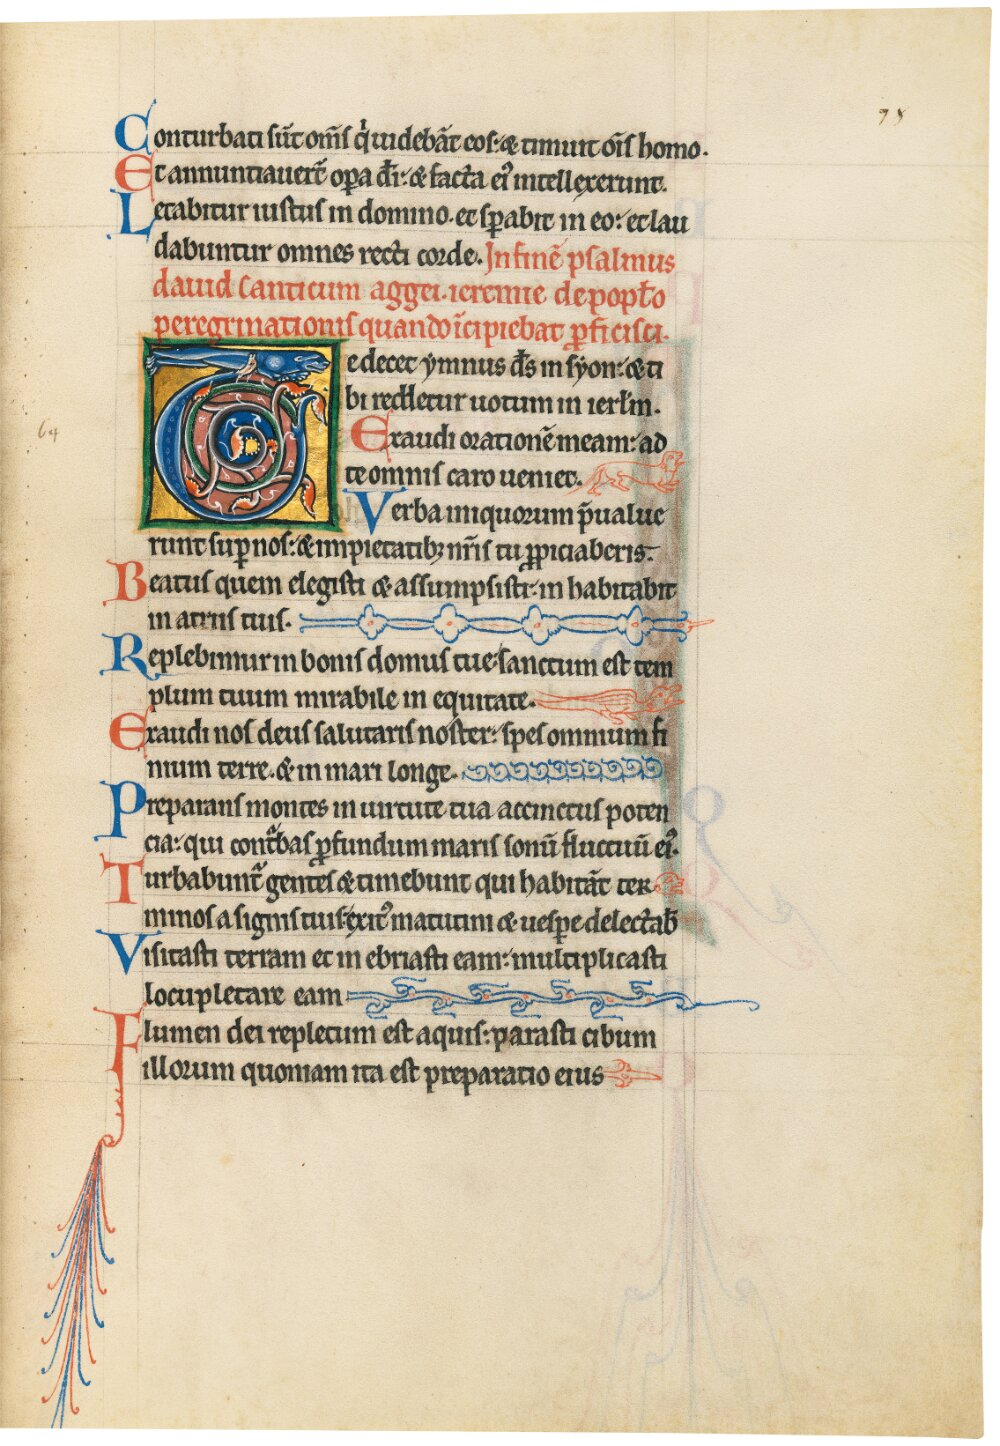 78
Conturbati sūt om̄s q̇ uidebāt eos: & timuit ōis homo.
Et annuntiauer̄t op̄a d̄i: & facta ei᷒ intellexerunt.
Letabitur iustus in domino. et sp̄abit in eo: et lau
dabuntur omnes recti corde. In finē psalmus
dauid Canticum aggei. ieremie de pop̄lo
peregrinationis quando īcipiebat p̄ficisci.
Te decet ymnus d̄s in syon: & ti
bi reddetur uotum in ierl̄m.
64
Exaudi orationē meam: ad
te omnis caro ueniet.
Verba iniquorum p̄ualue
runt sup̄ nos: & impietatib; nr̄is tu p̄piciaberis.
Beatus quem elegisti & assumpsisti: inhabitabit
in atriis tuis.
Replebimur in bonis domus tue: sanctum est tem
plum tuum mirabile in equitate.
Exaudi nos deus salutaris noster: spes omnium fi
nium terre. & in mari longe.
Preparans montes in uirtute tua accinctus poten
cia: qui cont̄bas p̄fundum maris sonū fluctuū ei᷒.
Turbabunt᷒ gentes & timebunt qui habitāt ter
minos a signis tuis: exit᷒ matutini & uesp̄e delectab̄
Visitasti terram et inebriasti eam: multiplicasti
locupletare eam
Flumen dei repletum est aquis: parasti cibum
illorum quoniam ita est preparatio eius